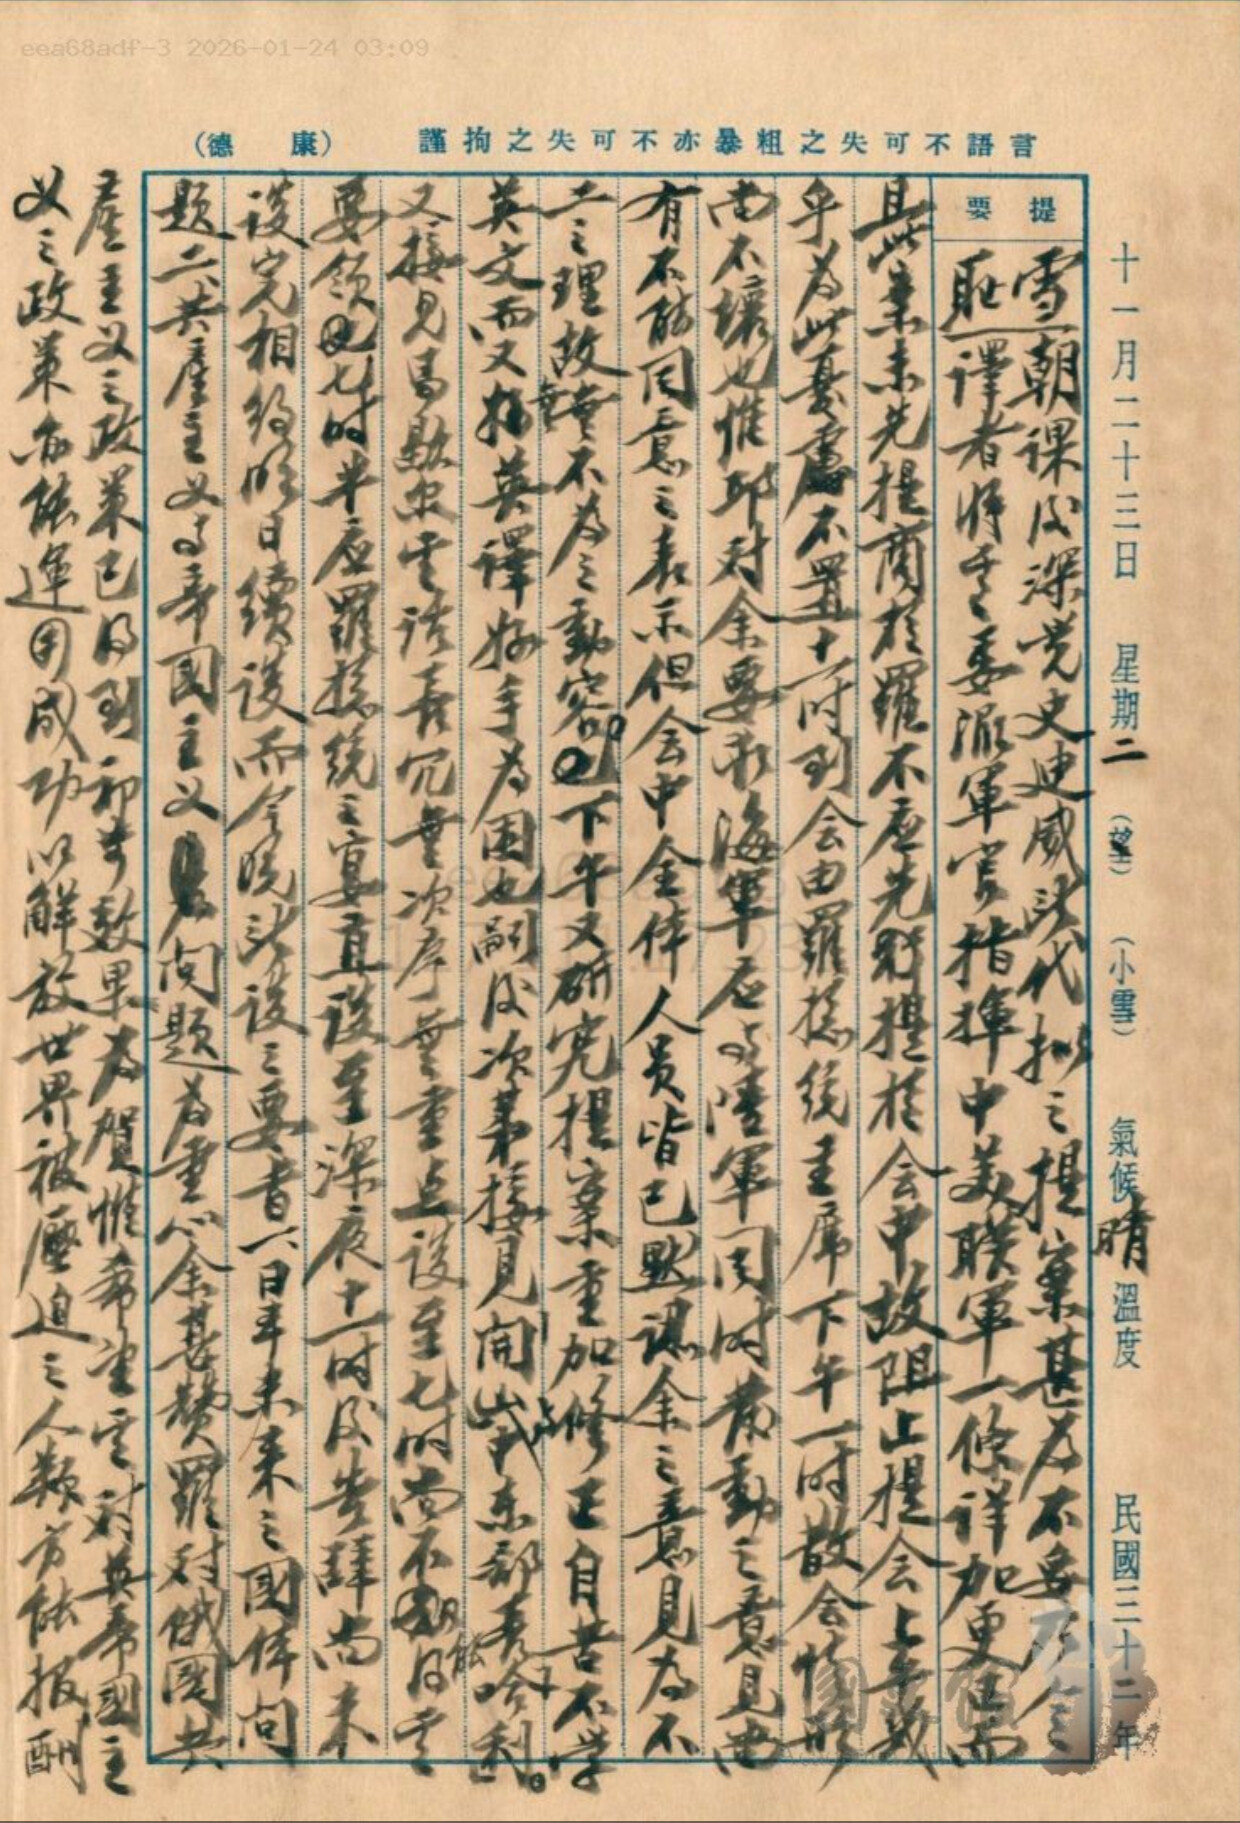 eea68adf-3 2026-01-24 03:09
言語不可失之粗暴亦不可失之拘謹 (康德)
十一月二十三日 星期二 (望) (小雪) 氣候晴 溫度 民國三十二年
提要
雪 朝課後深覺史迪威所代拟之提案甚為不妥乃令
恥 譯者將其委派軍官指揮中美聯軍一條詳加更正而
且此案未先提商於羅不應先提於會中故阻止提會上
乎為此憂慮不置十一時到會由羅總統主席下午一時散會情形
尚不壞也惟邱對余要求海軍應與陸軍同時發動之意見尚
有不能同意之表示但會中全体人員皆已默認余之意見為不
二之理故無不為之動容也下午又研究提案重加修正自苦不學
英文而又於英譯好手為困也嗣後次第接見開與中東部長哈利
又接見馬歇尔其話長冗無次序無重点談至七時尚不能得其
要領也七時半應羅總統之宴直談至深夜十一時後告辭尚未
談完相約明日續談而今晚所談之要者一日本未來之國体問
題二共產主义與帝國主义問題為重心余甚贊羅對俄國共
產主义之政策已得到初步效果為賀惟希望其對英帝國主
义之政策亦能運用成功以解放世界被壓迫之人類方能报酬